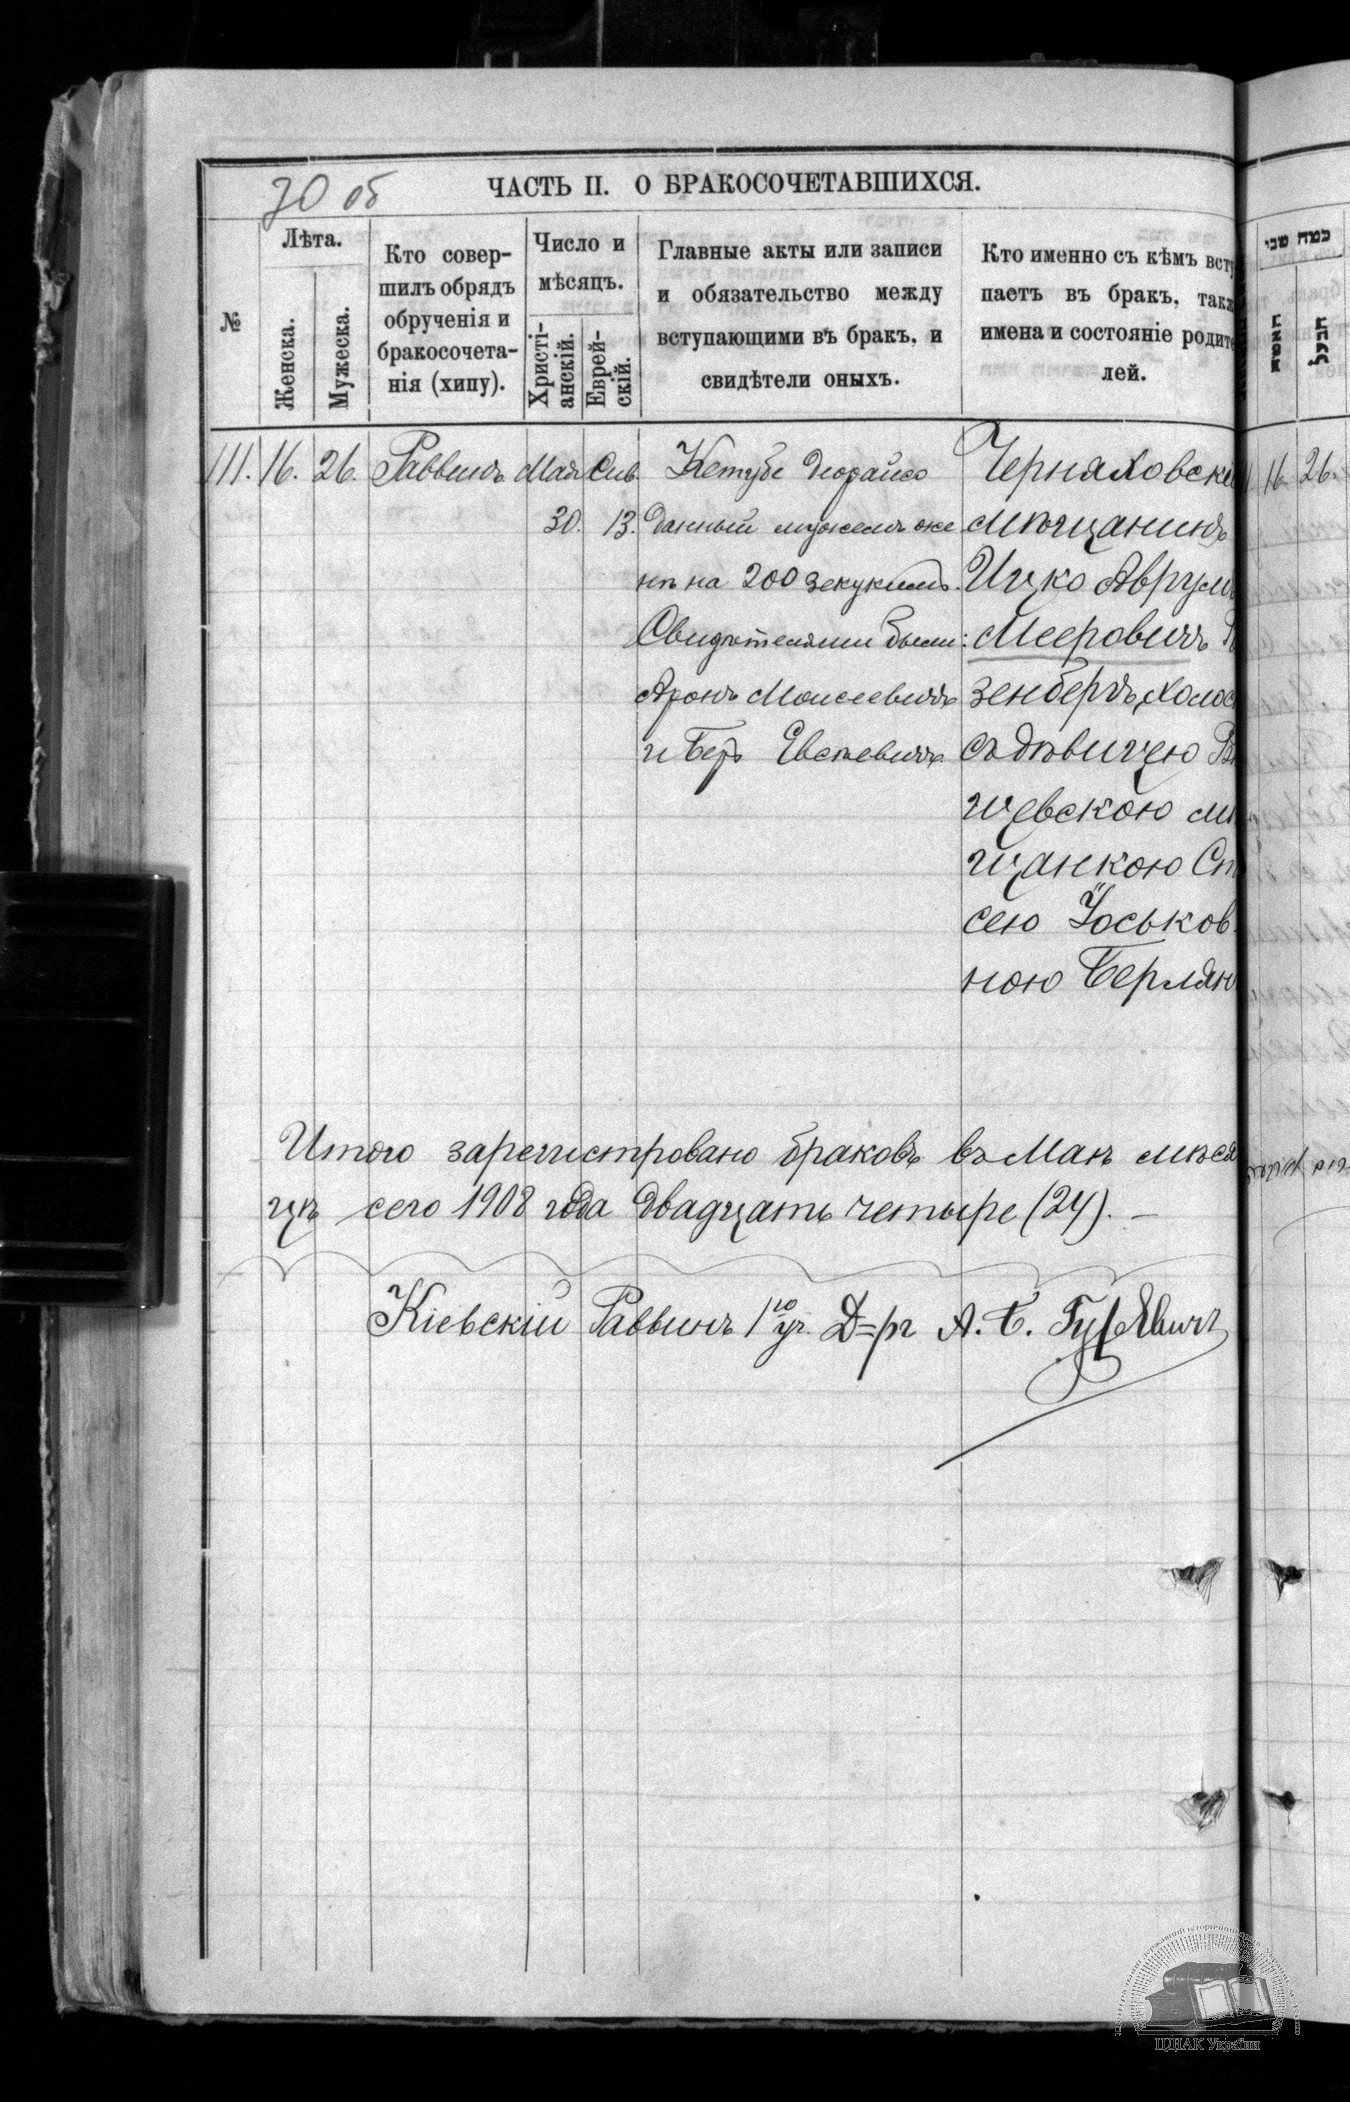 70 об
ЧАСТЬ II. О БРАКОСОЧЕТАВШИХСЯ.
№
Лѣта.
Женска.
Мужеска.
Кто совер-
шилъ обрядъ
обрученія и
бракосочета-
нія (хипу).
Число и
мѣсяцъ.
Христі-
анскій.
Еврей-
скій.
Главные акты или записи
и обязательство между
вступающими въ бракъ, и
свидѣтели оныхъ.
Кто именно съ кѣмъ всту
паетъ въ бракъ, такж
имена и состояніе родите
лей.
111. 16. 26. Раввинъ Мая Сив. Кетубе деорайсо
30. 13. данный мужемъ же
нѣ на 200 зекукимъ.
Свидѣтелями были:
Аронъ Моисеевичъ
и Беръ Евсеевичъ
Черняховск
мѣщанинъ
Ицко Аврумъ
Мееровичъ
зенбергъ, холос
съ дѣвицею
щевскою мѣ
щанкою
сею Іоськов
ною Берлян
Итого зарегистровано браковъ въ Маѣ мѣся
цѣ сего 1908 года двадцать четыре (24). —
Кіевскій Раввинъ 1го уч. Д=ръ А. Б. Гуревичъ
האשה
הבעל
16 26.
ЦДІАК України